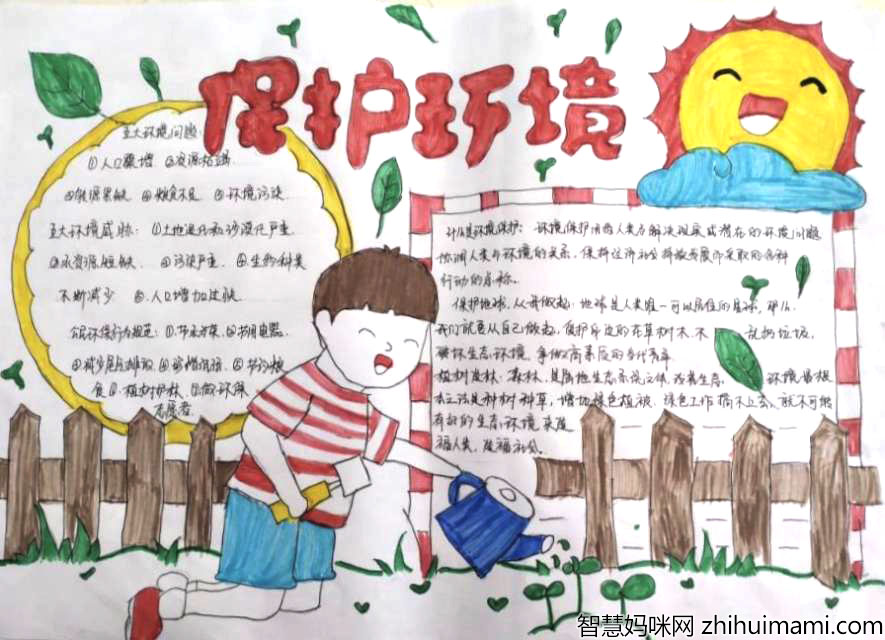 保护环境
五大环境问题:
①人口骤增 ②资源枯竭
③能源紧缺 ④粮食不足 ⑤环境污染
五大环境威胁: ①土地退化和沙漠化严重
②水资源短缺 ③污染严重 ④生物种类
不断减少 ⑤人口增加过快
公民环保行为规范: ①节水 ②节用电器
③减少尾气排放 ⑤节约粮
食⑥植树护林 ⑦做环保
志愿者
什么是环境保护: 环境保护 人类为解决现实或潜在的环境问题
协调人类与环境的关系, 保持经济社会持续发展所采取的各种
行动的总称。
保护地球, 从我做起: 地球是人类唯一可以居住的星球, 那么
我们就要从自己做起, 保护身边的花草树木, 不 乱扔垃圾,
破坏生态环境, 争做高素质的当代青年
植树造林: 森林, 是陆地生态系统 环境最根
本 是种树种草, 增加绿色植被, 绿色工作搞不上去, 就不可能
有好的生态环境 来造
福人类, 造福社会。
智慧妈咪网 zhihuimami.com